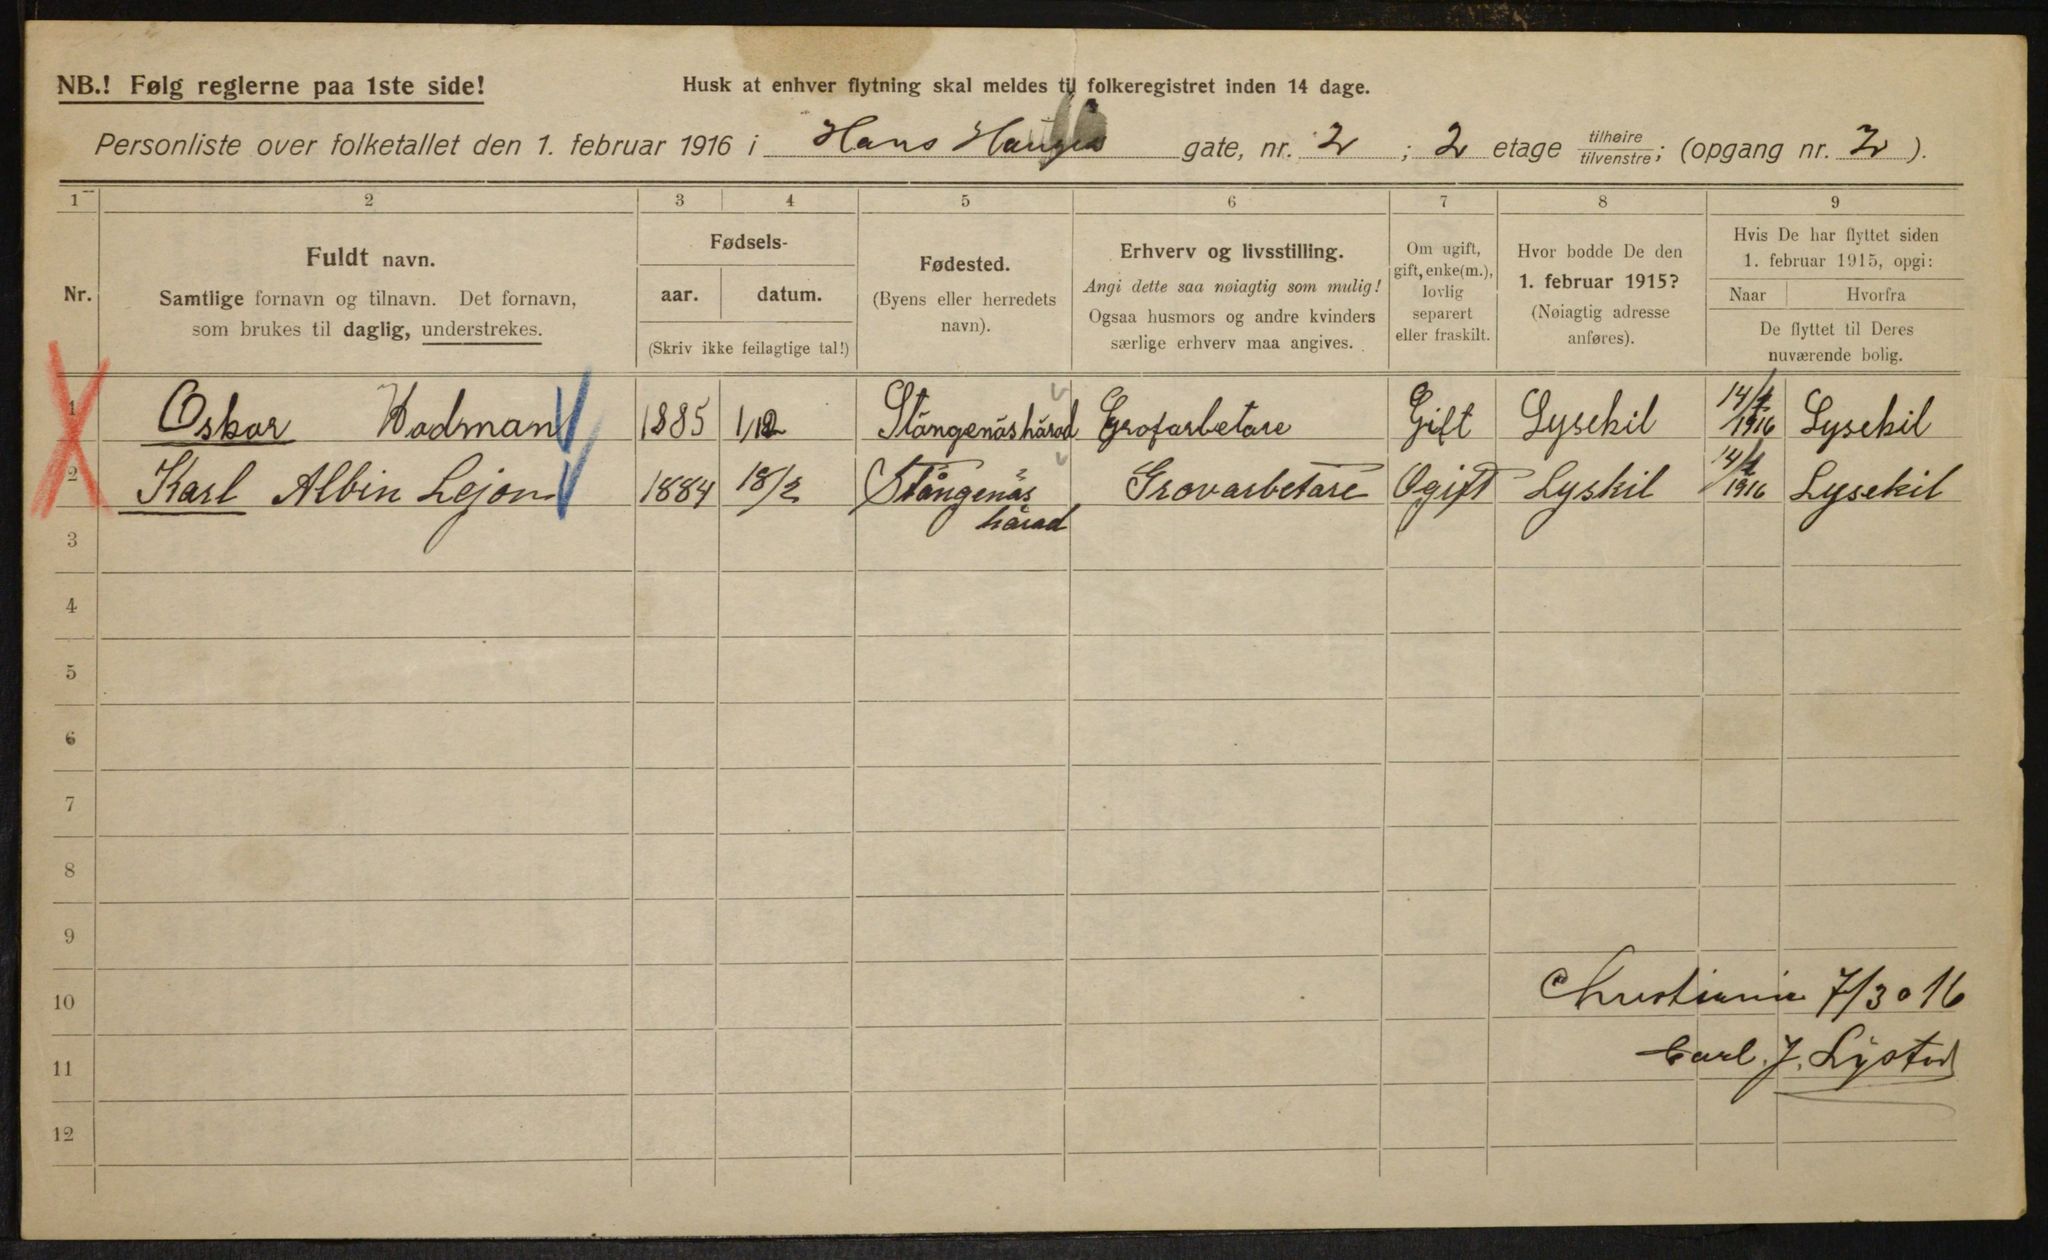 NB.! Følg reglerne paa 1ste side! Husk at enhver flytning skal meldes til folkeregistret inden 14 dage.
Personliste over folketallet den 1. februar 1916 i Hans Hauges gate, nr. 2 ; 2 etage tilhøire/tilvenstre; (opgang nr. 2 ).
1 2 3 4 5 6 7 8 9
Nr.
Fuldt navn.
Samtlige fornavn og tilnavn. Det fornavn,
som brukes til daglig, understrekes.
Fødsels-
aar. datum.
(Skriv ikke feilagtige tal!)
Fødested.
(Byens eller herredets
navn).
Erhverv og livsstilling.
Angi dette saa nøiagtig som mulig!
Ogsaa husmors og andre kvinders
særlige erhverv maa angives.
Om ugift,
gift, enke(m.),
lovlig
separert
eller fraskilt.
Hvor bodde De den
1. februar 1915?
(Nøiagtig adresse
anføres).
Hvis De har flyttet siden
1. februar 1915, opgi:
Naar Hvorfra
De flyttet til Deres
nuværende bolig.
1 Oskar Wodman 1885 1/12 Stångenäs härad Grofarbetare Gift Lysekil 14/1 1916 Lysekil
2 Karl Albin Lejon 1884 18/2 Stångenäs härad Grovarbetare Ogift Lyskil 14/1 1916 Lysekil
3
4
5
6
7
8
9
10 Christiania 7/3 o 16
11 Carl. J. Lystad
12